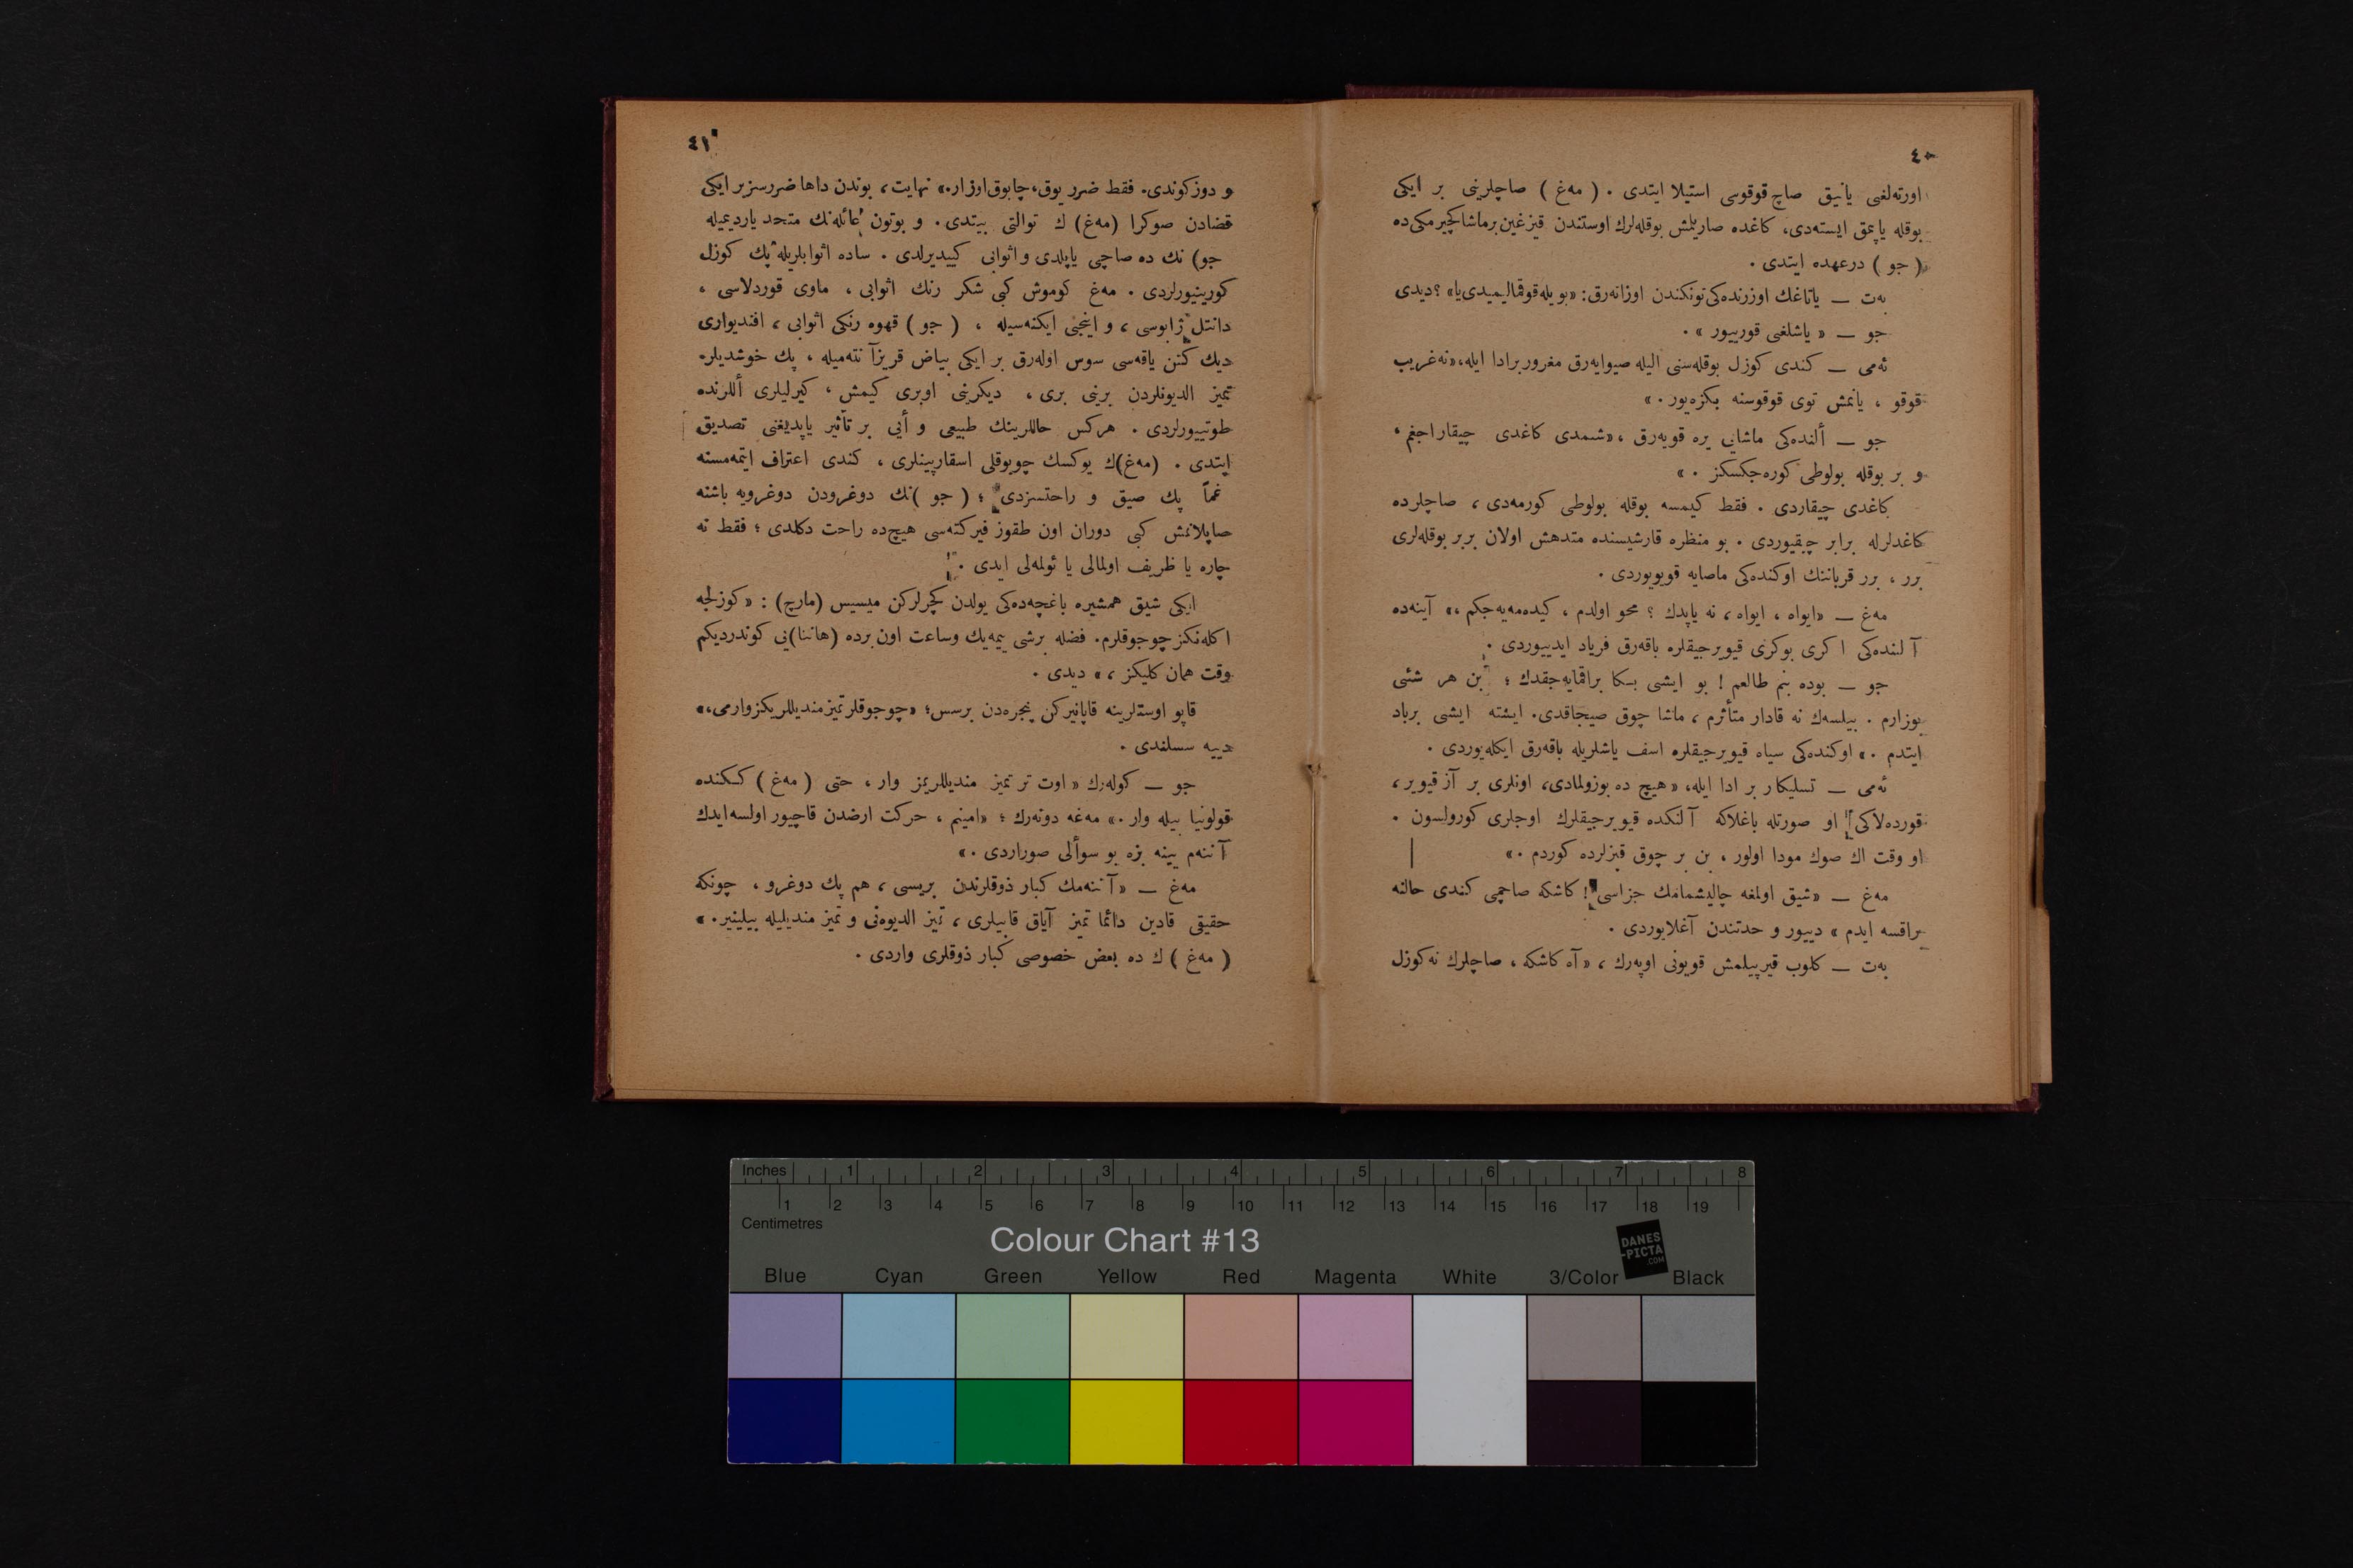 ٤٠
اورته‌لغی یانیق صاچ قوقوسی استیلا ایتدی . ( مه‌غ ) صاچلرینی بر ایکی
بوقله یاپمق ایسته‌دی، کاغده صاریلمش بوقله‌لرك اوستندن قیزغین برماشا کچیرمکی‌ده
( جو ) درعهده ایتدی .
به‌ت — یاتاغك اوزرنده‌کی تونکندن اوزانه‌رق: «بویله قوقمالیمیدی یا» ؟ دیدی
جو — « یاشلغی قورییور » .
ئه‌می — کندی کوزل بوقله‌سنی الیله صیوایه‌رق مغرور برادا ایله، «نه غریب
قوقو ، یانمش توی قوقوسنه بکزه‌یور . »
جو — ألنده‌کی ماشایی یره قویه‌رق ، «شمدی کاغدی چیقاراجغم ،
و بر بوقله بولوطی کوره‌جکسکز . »
کاغدی چیقاردی . فقط کیمسه بوقله بولوطی کورمه‌دی ، صاچلرده
کاغدلرله برابر چیقیوردی . بو منظره قارشیسنده متدهش اولان بربر بوقله‌لری
برر ، برر قربانتك اوکنده‌کی ماصایه قویویوردی .
مه‌غ — «ایواه ، ایواه ، نه یاپدك ؟ محو اولدم ، کیده‌مه‌یه‌جکم ،» آینه‌ده
آ لننده‌کی اکری بوکری قیویرجیقلره باقه‌رق فریاد ایدییوردی .
جو — بوده بنم طالعم ! بو ایشی بکا براقمایه‌جقدك ؛ بن هر شیئی
بوزارم . بیلسه‌ك نه قادار متأثرم ، ماشا چوق صیجاقدی. ایشته ایشی برباد
ایتدم . » اوکنده‌کی سیاه قیویرجیقلره اسف یاشلریله باقه‌رق ایکله‌یوردی .
ئه‌می — تسلیکار بر ادا ایله، « هیچ ده بوزولمادی، اونلری بر آز قیویر ،
قورده‌لاکی او صورتله باغلاکه آ لنکده قیویرجیقلرك اوجلری کورولسون .
او وقت اك صوك مودا اولور ، بن بر چوق قیزلرده کوردم . »
مه‌غ — «شیق اولمغه چالیشمامك جزاسی ! کاشکه صاچمی کندی حالنه
براقسه ایدم » دییور و حدتندن آغلایوردی .
به‌ت — کلوب قیرپیلمش قویونی اوپه‌رك ، « آه کاشکه ، صاچلرك نه کوزل
٤١
و دوزکوندی. فقط ضرر یوق، چابوق اوزار.» نهایت، بوندن داها ضررسز بر ایکی
قضادن صوکرا (مه‌غ) ك توالتی بیتدی . و بوتون عائله‌نك متحد یاردیمیله
جو) نك ده صاچی یاپلدی و اثوابی کییدیرلدی . ساده اثوابلریله پك کوزل
کورینیورلردی . مه‌غ کوموش کبی شکر رنك اثوابی ، ماوی قوردلاسی ،
دانتل ژابوسی ، و اینجی ایکنه‌سیله ، ( جو ) قهوه رنکی اثوابی ، افندیواری
دیك کتن یاقه‌سی سوس اوله‌رق بر ایکی بیاض قریزآ نته‌میله ، پك خوشدیلر.
تمیز الدیونلردن برینی بری ، دیکرینی اوبری کیمش ، کیرلیلری أللرنده
طوتییورلردی . هرکس حاللرینك طبیعی و أیی بر تأثیر یاپدیغنی تصدیق
ایتدی . (مه‌غ)ك یوکسك چوبوقلی اسقارپینلری ، کندی اعتراف ایتمه‌مسنه
غماً پك صیق و راحتسزدی ؛ ( جو )نك دوغرودن دوغرویه باشنه
صاپلانمش کبی دوران اون طقوز فیرکته‌سی هیچ‌ده راحت دکلدی ؛ فقط نه
چاره یا ظریف اولمالی یا ئولمه‌لی ایدی . !
ایکی شیق همشیره باغچه‌ده‌کی یولدن کچرلرکن میسیس (مارچ) : « کوزلجه
اکله‌نکز چوجوقلرم. فضله برشی ییمه‌یك وساعت اون برده (هاننا)یی کوندردیکم
وقت همان کلیکز ، » دیدی .
قاپو اوستلرینه قاپانیرکن پنجره‌دن برسس؛ «چوجوقلر تمیز مندیللریکز وارمی،»
دییه سسلندی .
جو — کوله‌رك « اوت تر تمیز مندیللریمز وار ، حتی ( مه‌غ ) کسکنده
قولونیا بیله وار .» مه‌غه دونه‌رك ؛ «امینم ، حرکت ارضدن قاچیور اولسه ایدك
آ ننه‌م یینه بزه بو سوألی صوراردی . »
مه‌غ — «آ ننه‌مك کبار ذوقلرندن بریسی ، هم پك دوغرو ، چونکه
حقیقی قادین دائما تمیز آیاق قابیلری ، تمیز الدیوه‌نی و تمیز مندیلیله بیلینیر. »
( مه‌غ ) ك ده بعض خصوصی کبار ذوقلری واردی .
Inches 1 2 3 4 5 6 7 8
1 2 3 4 5 6 7 8 9 10 11 12 13 14 15 16 17 18 19
Centimetres
Colour Chart #13
DANES
-PICTA
.COM
Blue Cyan Green Yellow Red Magenta White 3/Color Black